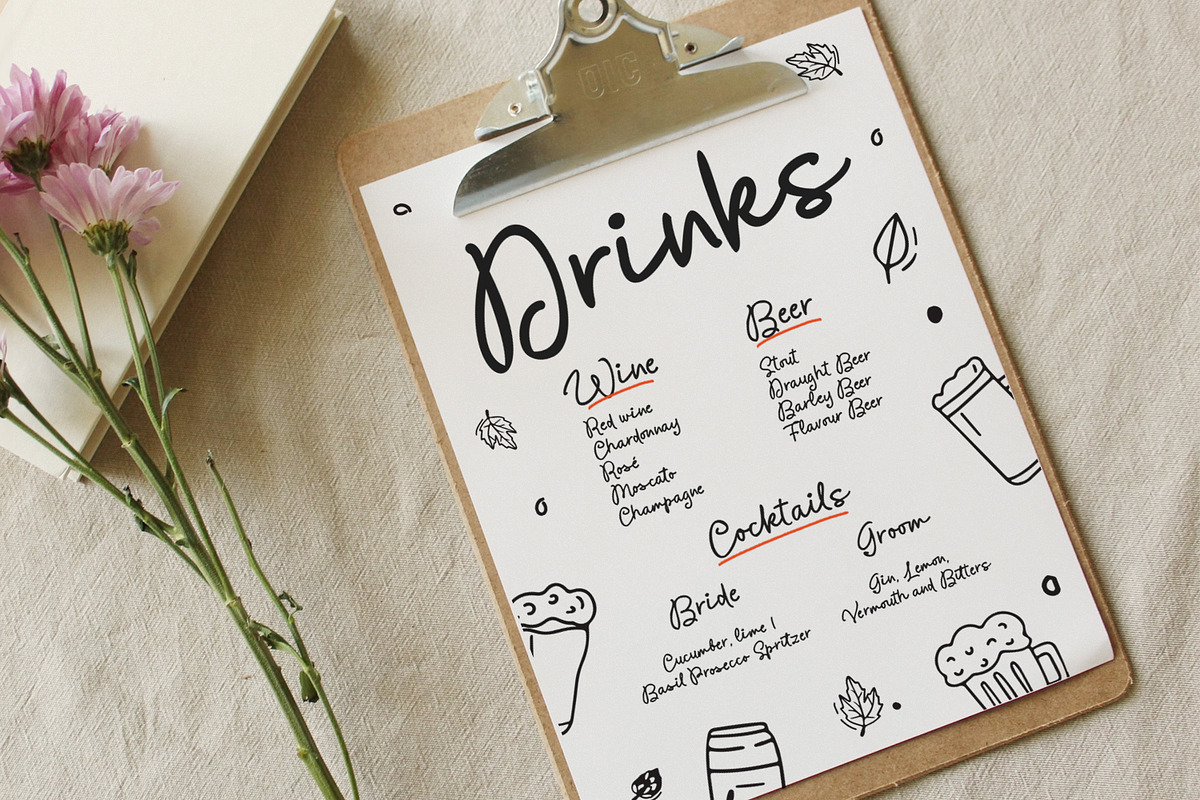 OIC
Drinks
Wine
Red wine
Chardonnay
Rosé
Moscato
Champagne
Beer
Stout
Draught Beer
Barley Beer
Flavour Beer
Cocktails
Bride
Cucumber, lime |
Basil Prosecco Spritzer
Groom
Gin, Lemon,
Vermouth and Bitters